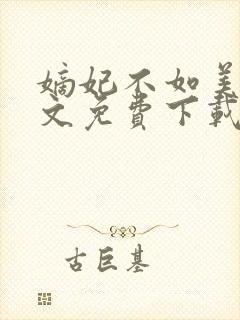 嫡妃不如美
文免费下载
古巨基